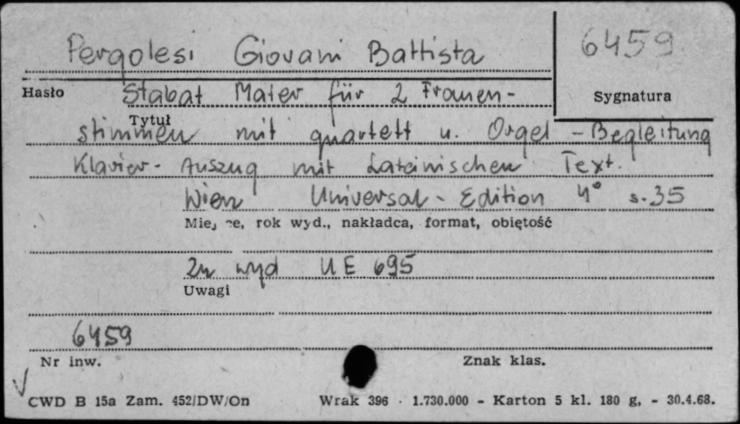 Pergolesi Giovani Battista
6459
Hasło
Stabat Mater für 2 Frauen-
Sygnatura
Tytuł
stimmen mit quartett u. Orgel - Begleitung
Klavier - Auszug mit Lateinischen Text.
Wien Universal - Edition 4° s. 35
Miejsce, rok wyd., nakładca, format, objętość
Zn wyd UE 695
Uwagi
6459
Nr inw.
Znak klas.
CWD B 15a Zam. 452/DW/On Wrak 396 · 1.730.000 - Karton 5 kl. 180 g, - 30.4.68.